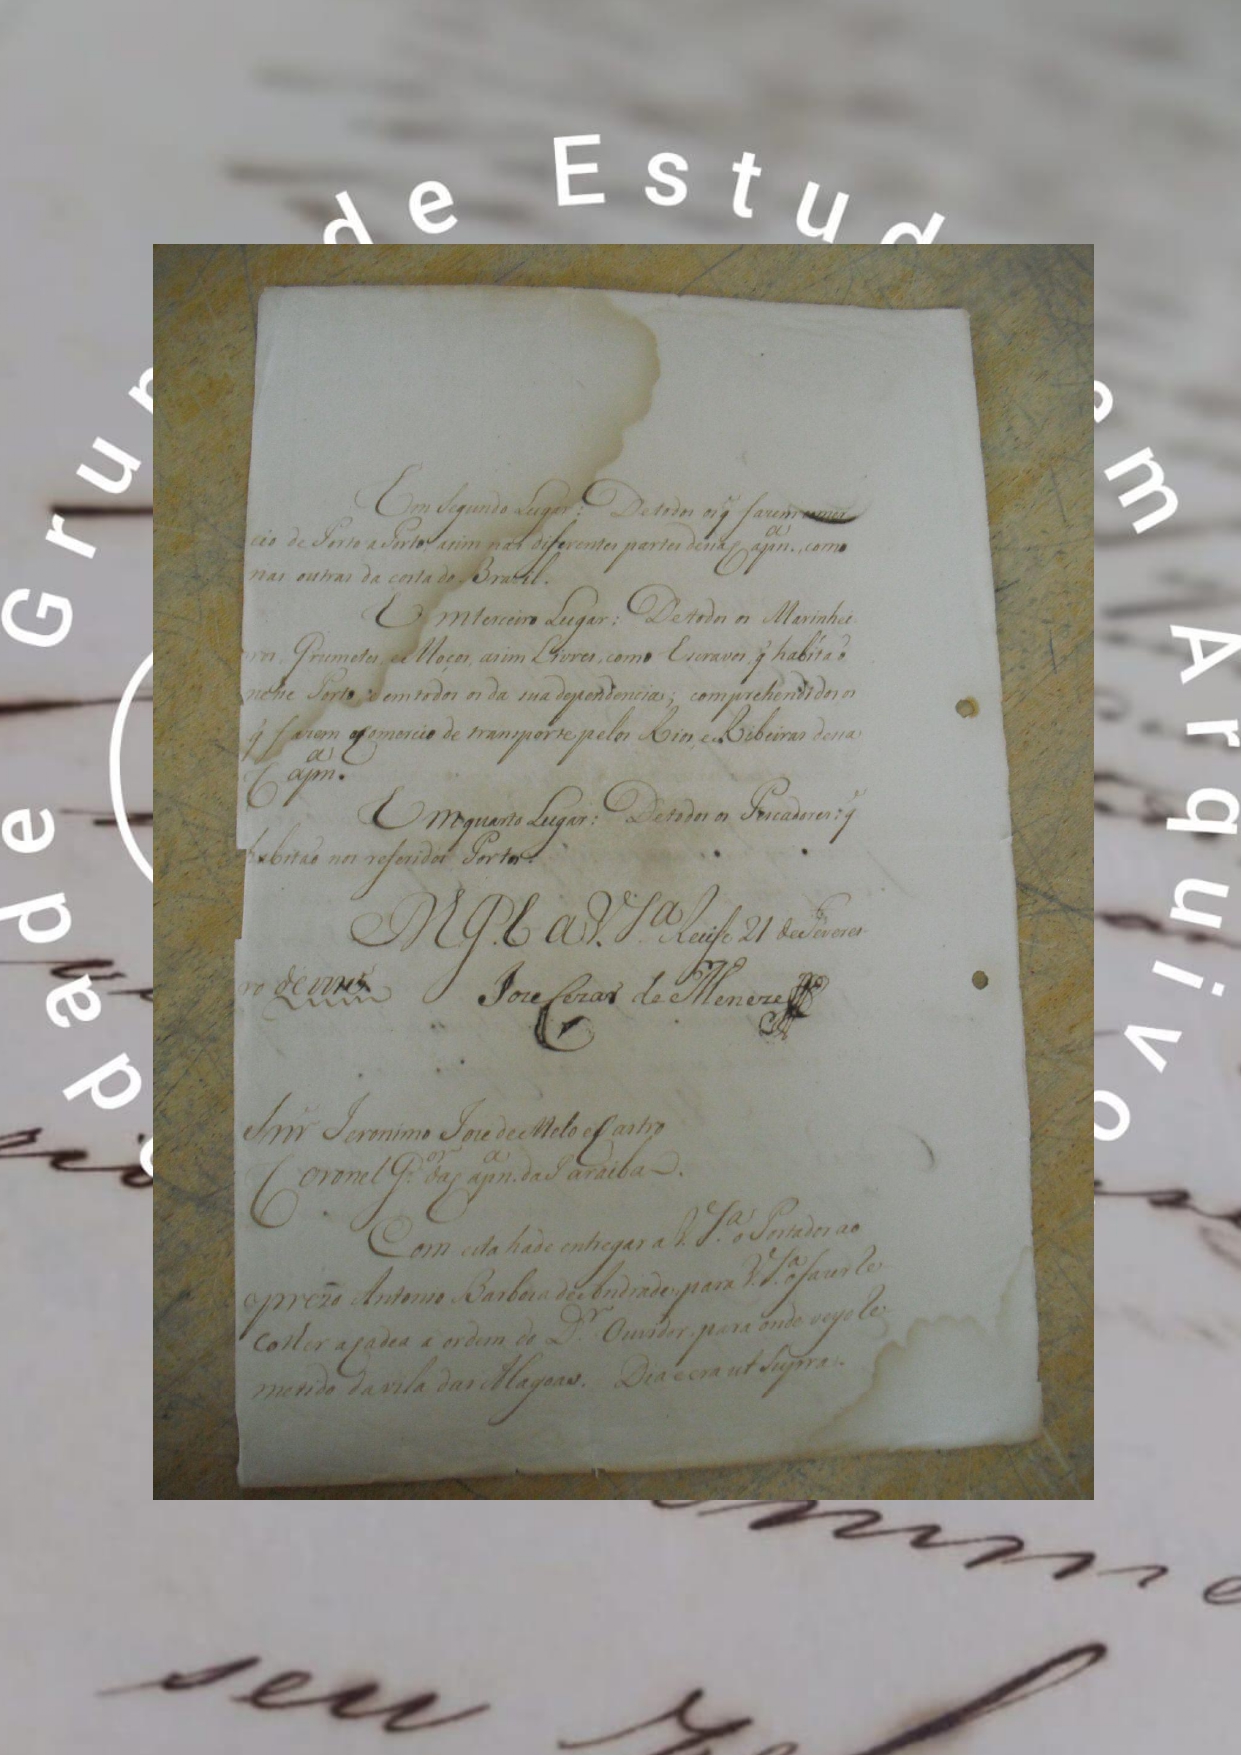 Grupo de Estudo em Arquivo
Em Segundo Lugar: De todos os q̃ fazem comer
cio de Porto a Porto, asim nas diferentes partes desta Capn.ª, como
nas outras da costa do Brazil.
Em terceiro Lugar: De todos os Marinhei
ros, Grumetes, e Moços, asim Livres, como Escravos, q̃ habitaõ
neste Porto e em todos os da sua dependencia; comprehendidos os
q̃ fazem o Comercio de transporte pelos Rios, e Ribeiras desta
Capn.ª
Em quarto Lugar: De todos os Pescadores: q̃
habitaõ nos referidos Portos.
D.ˢ G.ᵉ a V. S.ª Recife 21 de Feverei
ro de
Joze Cezar de Menezes
Snr̃ Jeronimo Joze de Melo e Castro
Coronel G.ᵒʳ da Capn.ª da Paraiba.
Com esta hade entregar a V. S.ª o Portador ao
o prezo Antonio Barboza de Andrade, para V. S.ª o fazer le
colher a Cadea a ordem do D.ʳ Ouvidor, para onde veyo le
metido da vila das Alagoas. Dia e era ut Supra.
seu